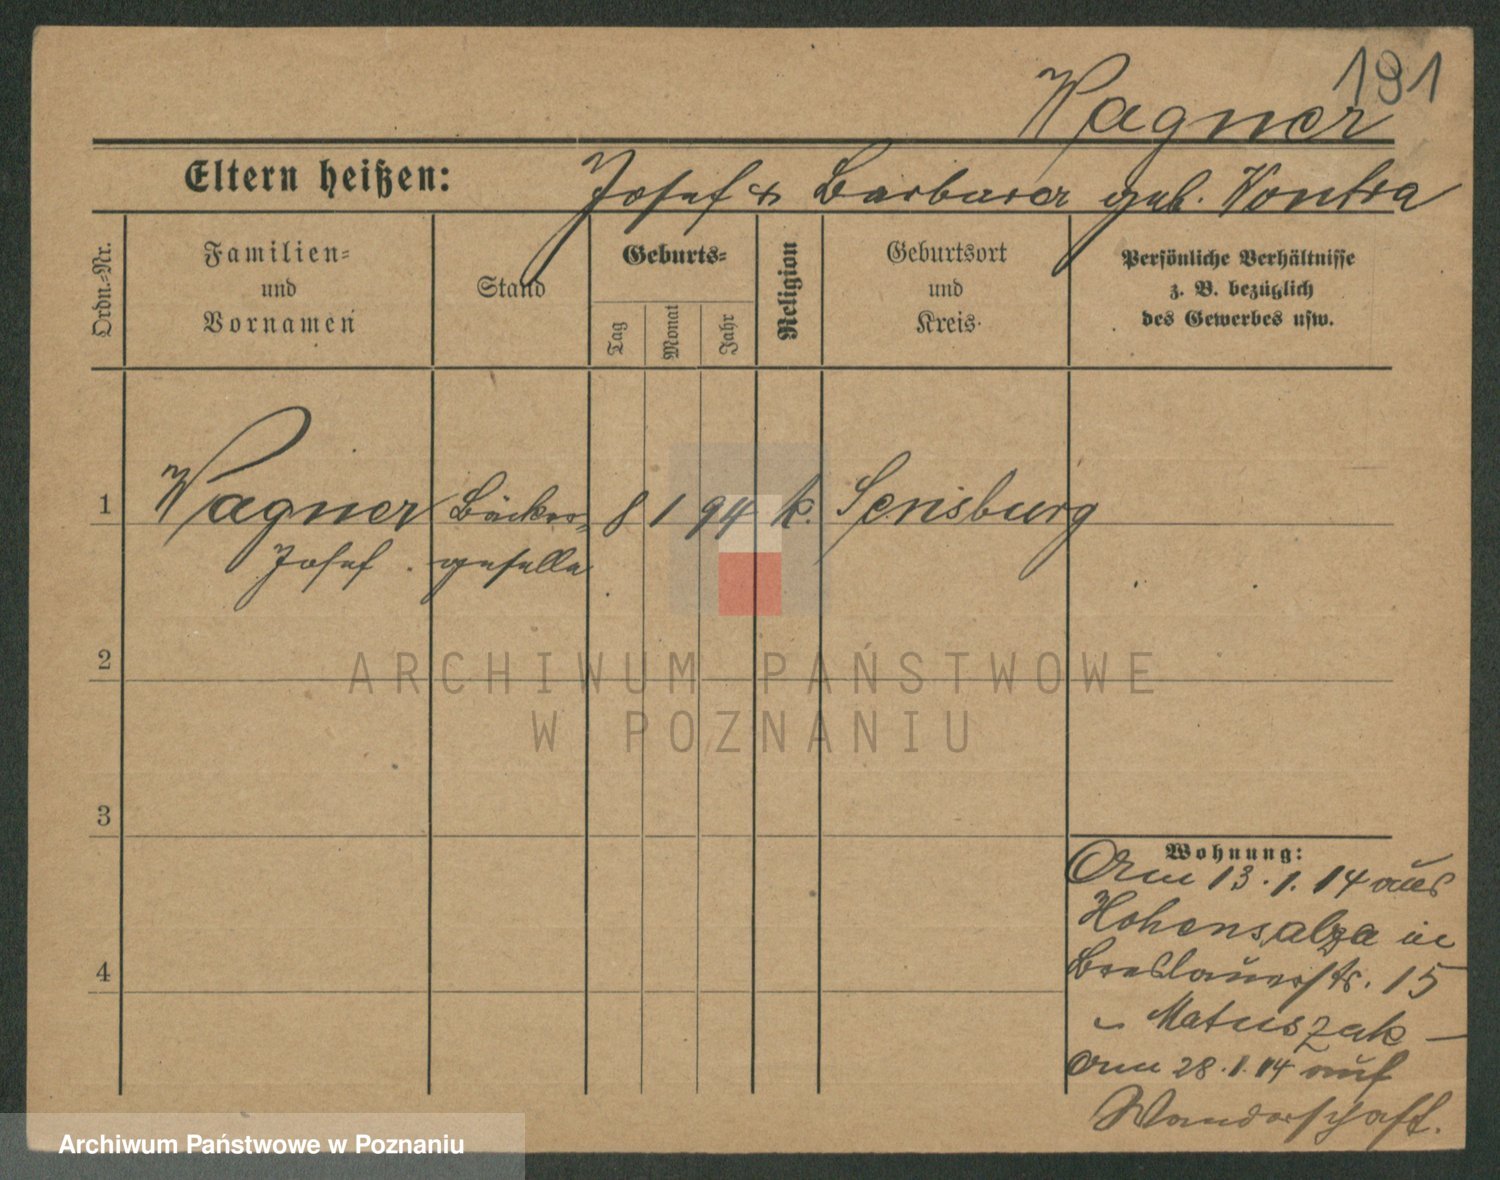 191
Wagner
Eltern heißen: Josef & Barbara geb. Wontra
Ordn.-Nr.
Familien-
und
Vornamen
Stand
Geburts-
Tag
Monat
Jahr
Religion
Geburtsort
und
Kreis.
Persönliche Verhältnisse
z. B. bezüglich
des Gewerbes usw.
1 Wagner Bäcker- 8 1 94 k. Sensburg
Josef. geselle
2
3
4
Wohnung:
Am 13.1.14 aus
Hohensalza in
Breslauerstr. 15
Matuszak –
Am 28.1.14 auf
Wanderschaft.
ARCHIWUM PAŃSTWOWE
W POZNANIU
Archiwum Państwowe w Poznaniu